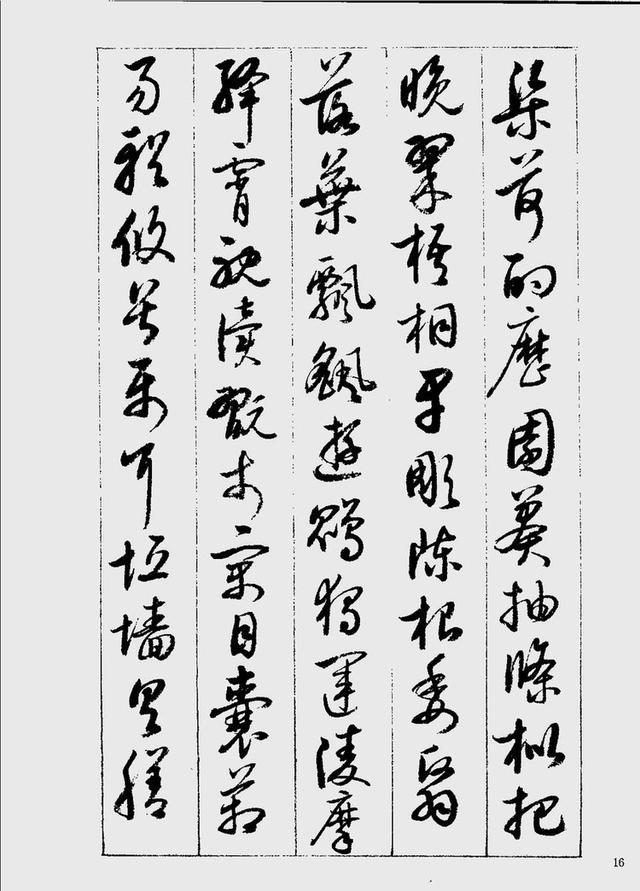 渠荷的歷園莽抽條枇杷
晚翠梧桐早彫陳根委翳
落葉飄颻遊鵾獨運凌摩
絳霄耽讀翫市寓目囊箱
易輶攸畏屬耳垣墻具膳
16